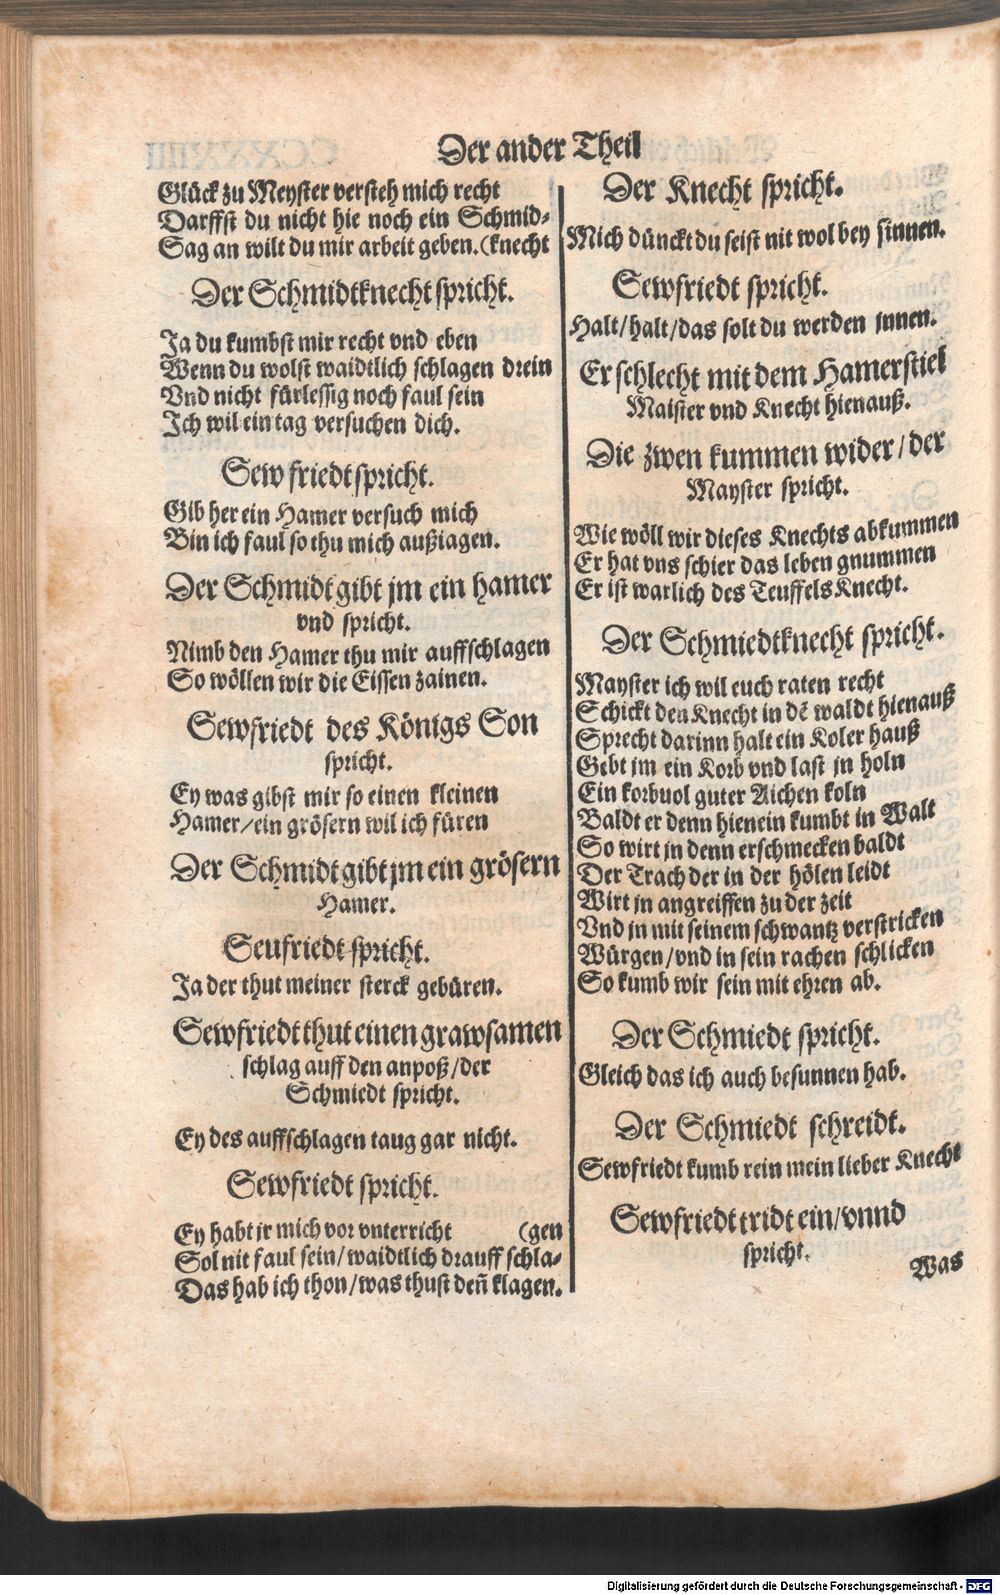 Der ander Theil
Glück zu Meyster versteh mich recht
Darffst du nicht hie noch ein Schmid-
Sag an wilt du mir arbeit geben.(knecht
Der Schmidtknecht spricht.
Ja du kumbst mir recht vnd eben
Wenn du wolst waidtlich schlagen drein
Vnd nicht fürlessig noch faul sein
Ich wil ein tag versuchen dich.
Sewfriedt spricht.
Gib her ein Hamer versuch mich
Bin ich faul so thu mich außiagen.
Der Schmidt gibt jm ein hamer
vnd spricht.
Nimb den Hamer thu mir auffschlagen
So wöllen wir die Eissen zainen.
Sewfriedt des Königs Son
spricht.
Ey was gibst mir so einen kleinen
Hamer/ein grösern wil ich füren
Der Schmidt gibt jm ein grösern
Hamer.
Seufriedt spricht.
Ja der thut meiner sterck gebüren.
Sewfriedt thut einen grawsamen
schlag auff den anpoß/der
Schmiedt spricht.
Ey des auffschlagen taug gar nicht.
Sewfriedt spricht.
Ey habt jr mich vor vnterricht (gen
Sol nit faul sein/waidtlich drauff schla-
Das hab ich thon/was thust deñ klagen.
Der Knecht spricht.
Mich dünckt du seist nit wol bey sinnen.
Sewfriedt spricht.
Halt/halt/das solt du werden jnnen.
Er schlecht mit dem Hamerstiel
Maister vnd Knecht hienauß.
Die zwen kummen wider/der
Mayster spricht.
Wie wöll wir dieses Knechts abkummen
Er hat vns schier das leben gnummen
Er ist warlich des Teuffels Knecht.
Der Schmiedtknecht spricht.
Mayster ich wil euch raten recht
Schickt den Knecht in dē waldt hienauß
Sprecht darinn halt ein Koler hauß
Gebt jm ein Korb vnd last jn holn
Ein korbuol guter Aichen koln
Baldt er denn hienein kumbt in Walt
So wirt jn denn erschmecken baldt
Der Trach der in der hölen leidt
Wirt jn angreiffen zu der zeit
Vnd jn mit seinem schwantz verstricken
Würgen/vnd in sein rachen schlicken
So kumb wir sein mit ehren ab.
Der Schmiedt spricht.
Gleich das ich auch besunnen hab.
Der Schmiedt schreidt.
Sewfriedt kumb rein mein lieber Knecht
Sewfriedt tridt ein/vnnd
spricht.
Was
Digitalisierung gefördert durch die Deutsche Forschungsgemeinschaft - DFG